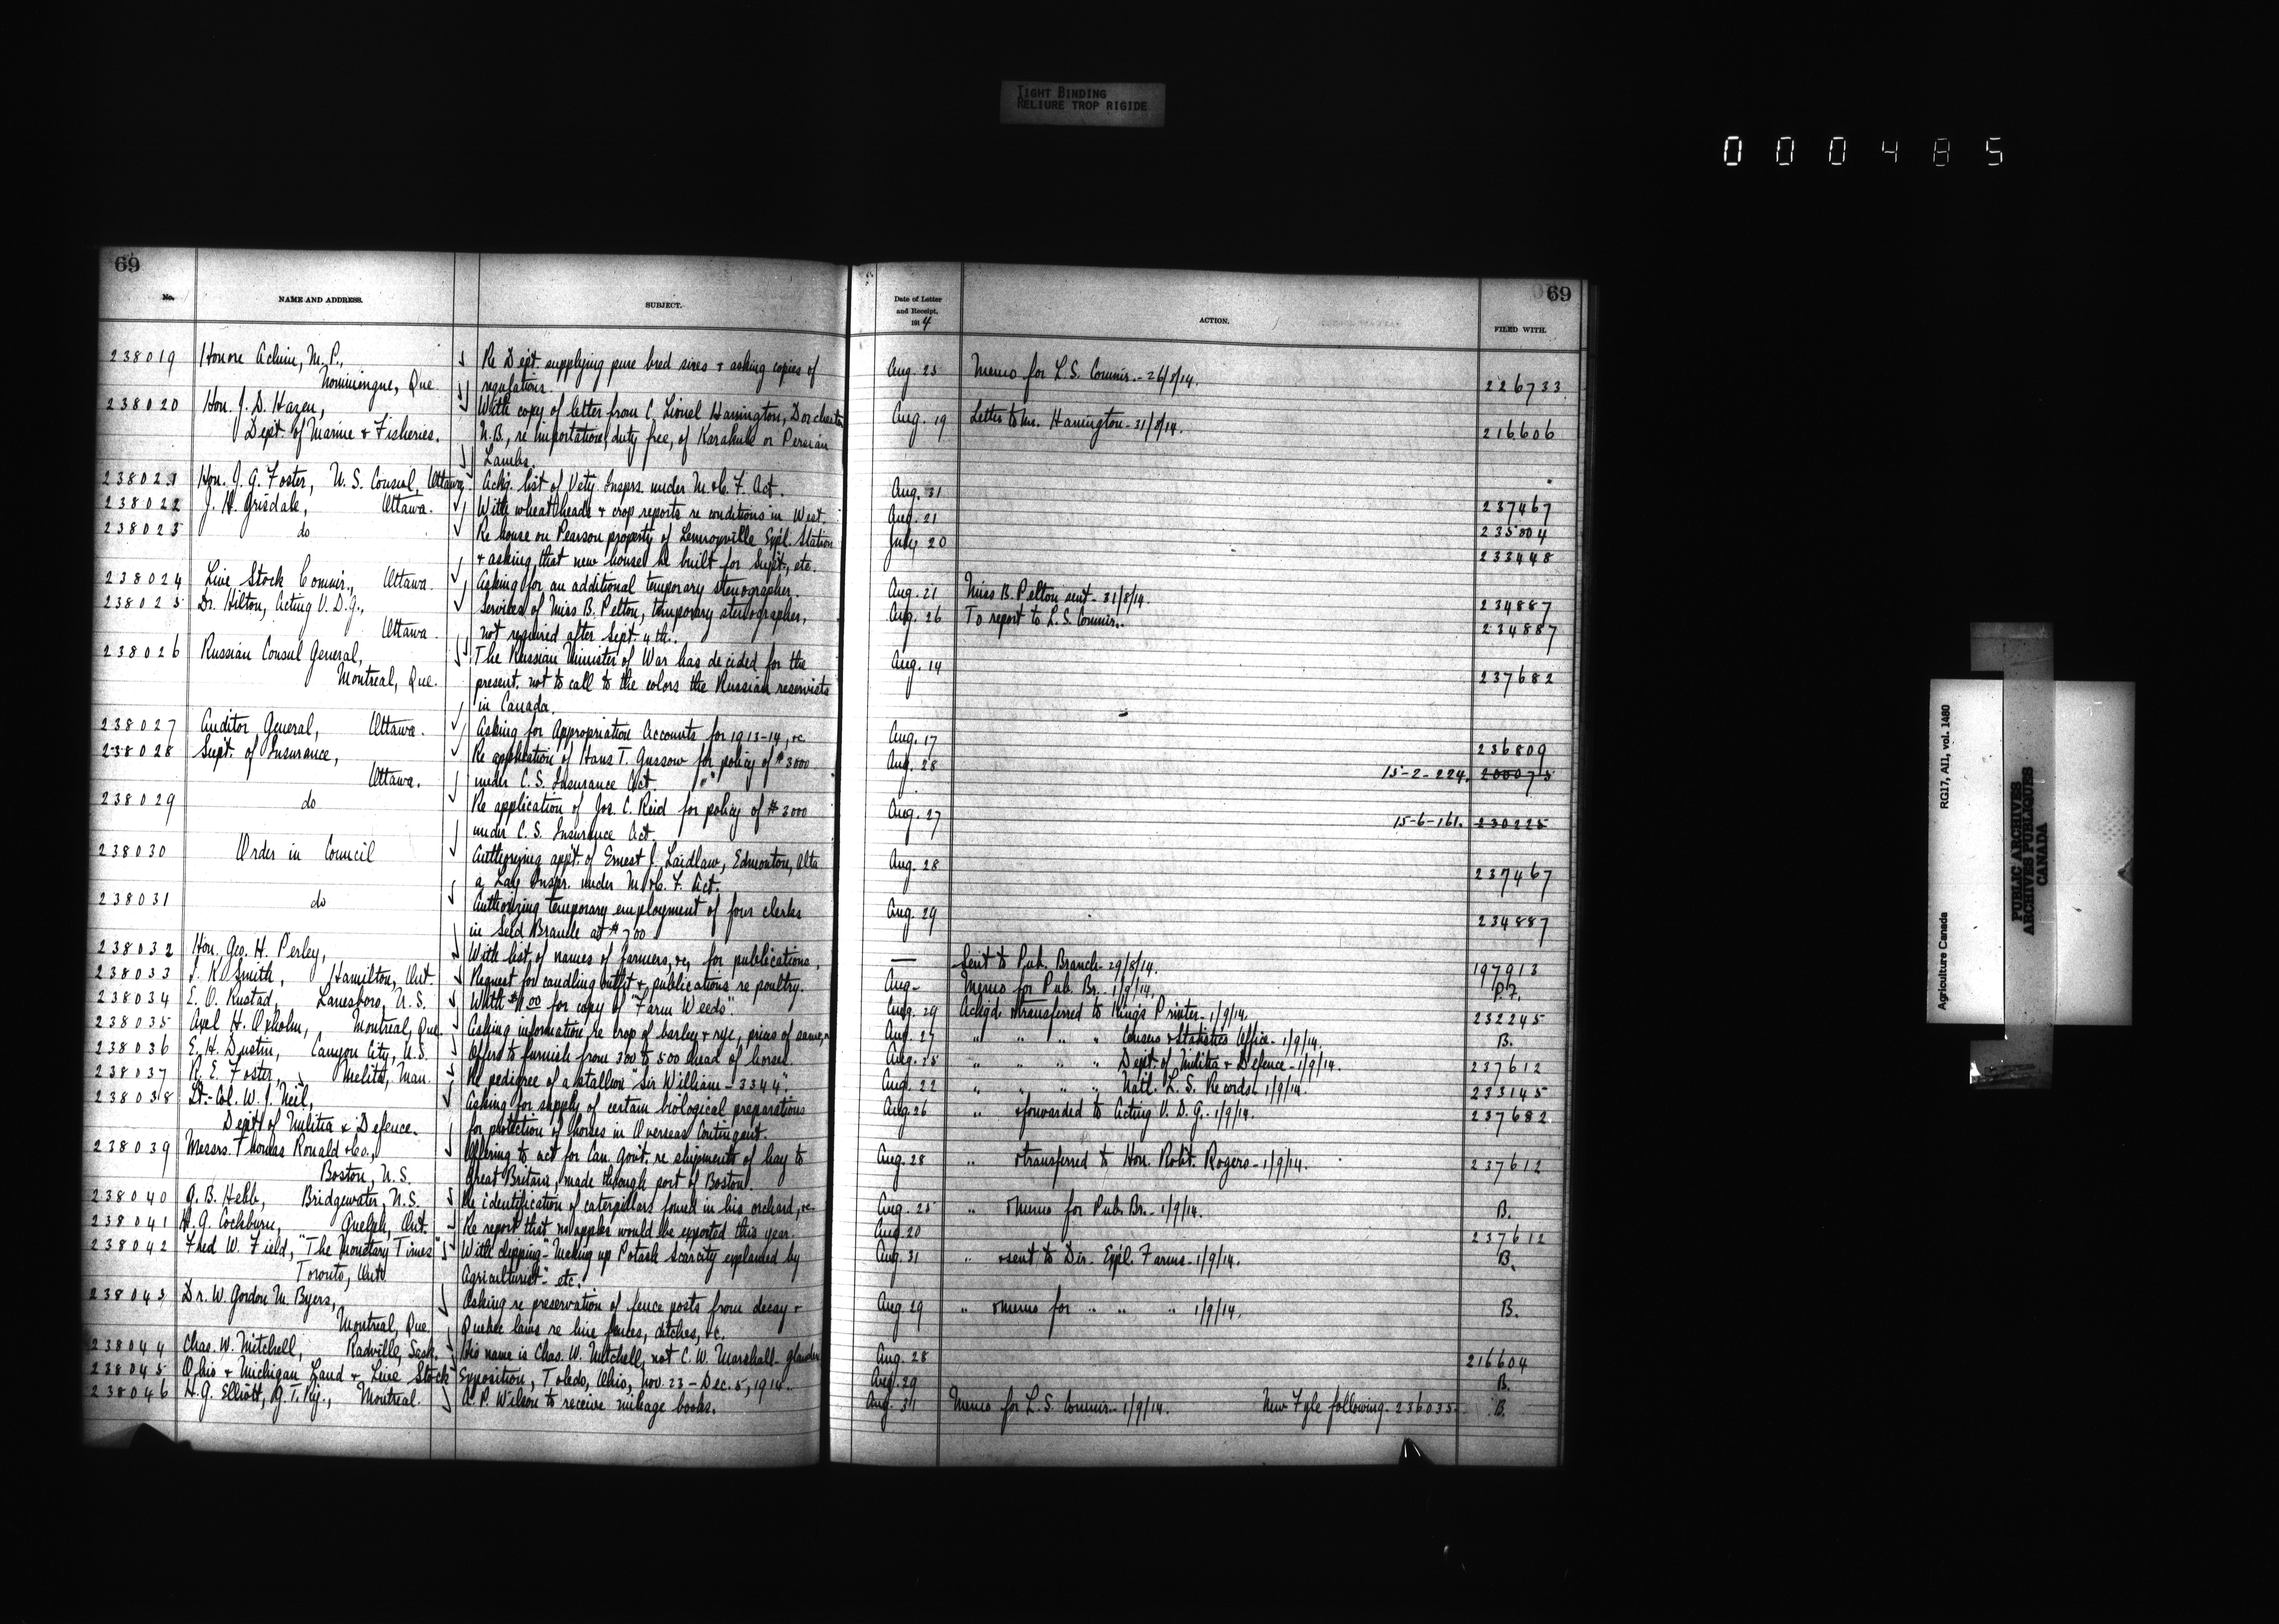 TIGHT BINDING
RELIURE TROP RIGIDE
000485
69
No.
NAME AND ADDRESS.
SUBJECT.
238019 Honore Achim, M.P., Re Dept. supplying pure bred sires & asking copies of
Nominingue, Que. regulations.
238020 Hon. J. D. Hazen, With copy of letter from C. Lionel Hanington, Dorchester
Dept. of Marine & Fisheries. N.B., re importation, duty free, of Karakule or Persian
Lambs.
238021 Hon. J. G. Foster, U.S. Consul, Ottawa. Ackg. list of Vety. Insprs. under M. & C. F. Act.
238022 J. H. Grisdale, Ottawa. With wheat heads & crop reports re conditions in West.
238023 do Re house on Pearson property of Lennoxville Expl. Station
& asking that new house be built for Supt., etc.
238024 Live Stock Commr., Ottawa. Asking for an additional temporary stenographer.
238025 Dr. Hilton, Acting V.D.G., Services of Miss B. Pelton, temporary stenographer,
Ottawa. not required after Sept. 4th.
238026 Russian Consul General, The Russian Minister of War has decided for the
Montreal, Que. present, not to call to the colors the Russian reservists
in Canada.
238027 Auditor General, Ottawa. Asking for Appropriation Accounts for 1913-14, &c
238028 Supt. of Insurance, Re application of Hans T. Gussow for policy of $3000
Ottawa. under C. S. Insurance Act.
238029 do Re application of Jos. C. Reid for policy of $3000
under C. S. Insurance Act.
238030 Order in Council Authorizing appt. of Ernest J. Laidlaw, Edmonton, Alta
a Lay Inspr. under M. & C. F. Act.
238031 do Authorizing temporary employment of four clerks
in Seed Branch at $700
238032 Hon. Geo. H. Perley, With list of names of farmers, &c, for publications.
238033 J. K. Smith, Hamilton, Ont. Request for candling outfit & publications re poultry.
238034 E. O. Rustad, Lanesboro, U.S. With $1.00 for copy of "Farm Weeds".
238035 Axel H. Oxholm, Montreal, Que. Asking information re crop of barley & rye, prices of same, &c
238036 E. H. Dustin, Canyon City, U.S. Offers to furnish from 300 to 500 head of horses.
238037 R. E. Foster, Melita, Man. Re pedigree of a stallion "Sir William - 3344".
238038 Lt.-Col. W. J. Neil, Asking for supply of certain biological preparations
Dept. of Militia & Defence. for protection of horses in Overseas Contingent.
238039 Messrs. Thomas Ronald & Co., Offering to act for Can. Govt. re shipments of hay to
Boston, U.S. Great Britain, made through port of Boston.
238040 G. B. Hebb, Bridgewater, N.S. Re identification of caterpillars found in his orchard, &c
238041 H. G. Cockburn, Guelph, Ont. Re report that no apples would be exported this year.
238042 Fred W. Field, "The Monetary Times" With clipping "Making up Potash Scarcity explained by
Toronto, Ont Agriculturist" etc.
238043 Dr. W. Gordon M. Byers, Asking re preservation of fence posts from decay &
Montreal, Que. Quebec laws re line fences, ditches, &c.
238044 Chas. W. Mitchell, Radville, Sask. His name is Chas. W. Mitchell, not C. W. Marshall - glanders
238045 Ohio & Michigan Land & Live Stock Exposition, Toledo, Ohio, Nov. 23 - Dec. 5, 1914.
238046 H. G. Elliott, G. T. Ry., Montreal. A. P. Wilson to receive mileage books.
69
Date of Letter
and Receipt,
1914
ACTION.
FILED WITH.
Aug. 25 Memo for L. S. Commr. - 26/8/14. 226733
Aug. 19 Letter to Mr. Hanington - 31/8/14. 216606
Aug. 31 237467
Aug. 21 235804
July 20 233448
Aug. 21 Miss B. Pelton sent - 31/8/14. 234887
Aug. 26 To report to L. S. Commr. 234887
Aug. 14 237682
Aug. 17 236809
Aug. 28 15-2-224. 200075
Aug. 27 15-6-161. 230225
Aug. 28 237467
Aug. 29 234887
— Sent to Pub. Branch - 29/8/14. 197913
Aug - Memo for Pub. Br. - 1/9/14. P.F.
Aug. 29 Ackgd. & transferred to King's Printer - 1/9/14. 232245
Aug. 27 " " " " Census & Statistics Office - 1/9/14. B.
Aug. 25 " " " " Dept. of Militia & Defence - 1/9/14. 237612
Aug. 22 " " " " Natl. L. S. Records - 1/9/14. 233145
Aug. 26 " & forwarded to Acting V. D. G. - 1/9/14. 237682
Aug. 28 " & transferred to Hon. Robt. Rogers - 1/9/14. 237612
Aug. 25 " & memo for Pub. Br. - 1/9/14. B.
Aug. 20 237612
Aug. 31 " & sent to Dir. Expl. Farms - 1/9/14. B.
Aug. 29 " & memo for " " " 1/9/14. B.
Aug. 28 216604
Aug. 29 B.
Aug. 31 Memo for L. S. Commr. - 1/9/14. New Fyle following - 236035 B.
Agriculture Canada RG17, A11, vol. 1480
PUBLIC ARCHIVES
ARCHIVES PUBLIQUES
CANADA